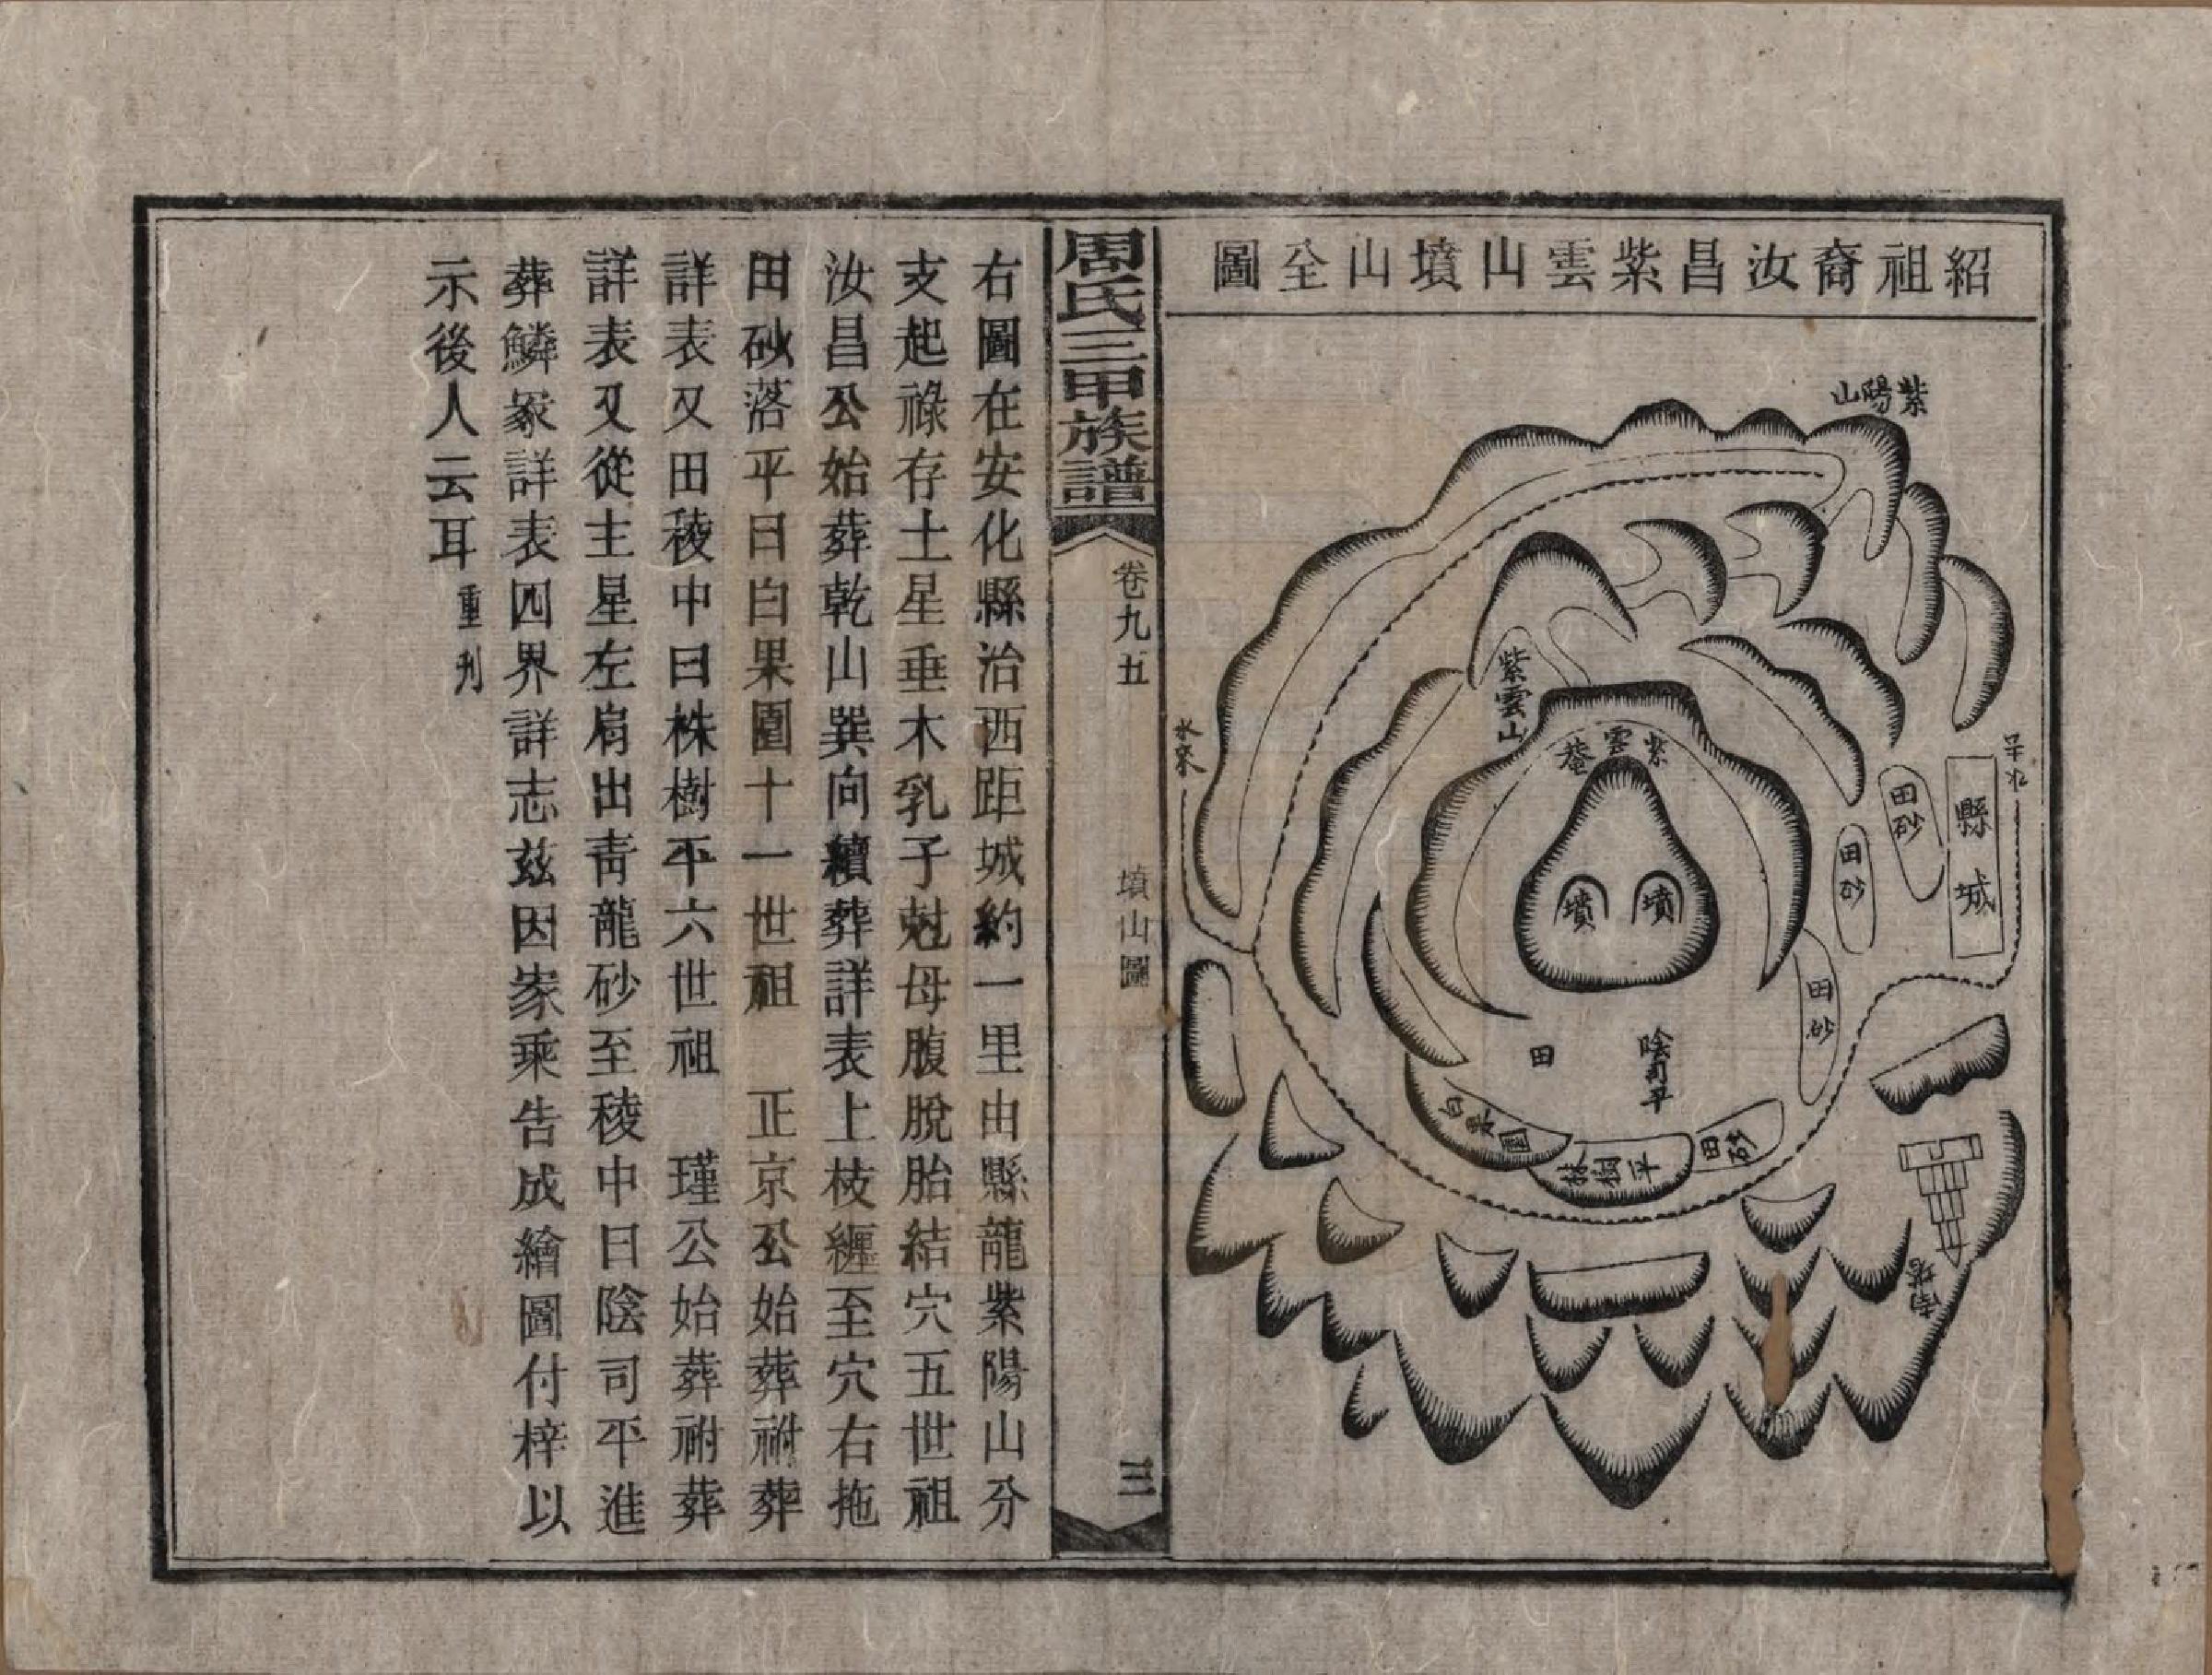 紹祖裔汝昌紫雲山墳山全圖
紫陽山
紫雲山
紫雲菴
水來
縣城
田砂
田砂
田砂
田砂
墳
墳
田
陰司平
白果園
株樹平
南塔
周氏三甲族譜
卷九五
墳山圖
三
右圖在安化縣治西距城約一里由縣龍紫陽山分
支起祿存土星垂木乳子尅母腹脫胎結穴五世祖
汝昌公始葬乾山巽向續葬詳表上枝纏至穴右拖
田砂落平曰白果園十一世祖　正京公始葬祔葬
詳表又田稜中曰株樹平六世祖　瑾公始葬祔葬
詳表又從主星左肩出青龍砂至稜中曰陰司平進
葬鱗冢詳表四界詳志兹因家乘告成繪圖付梓以
示後人云耳重刋